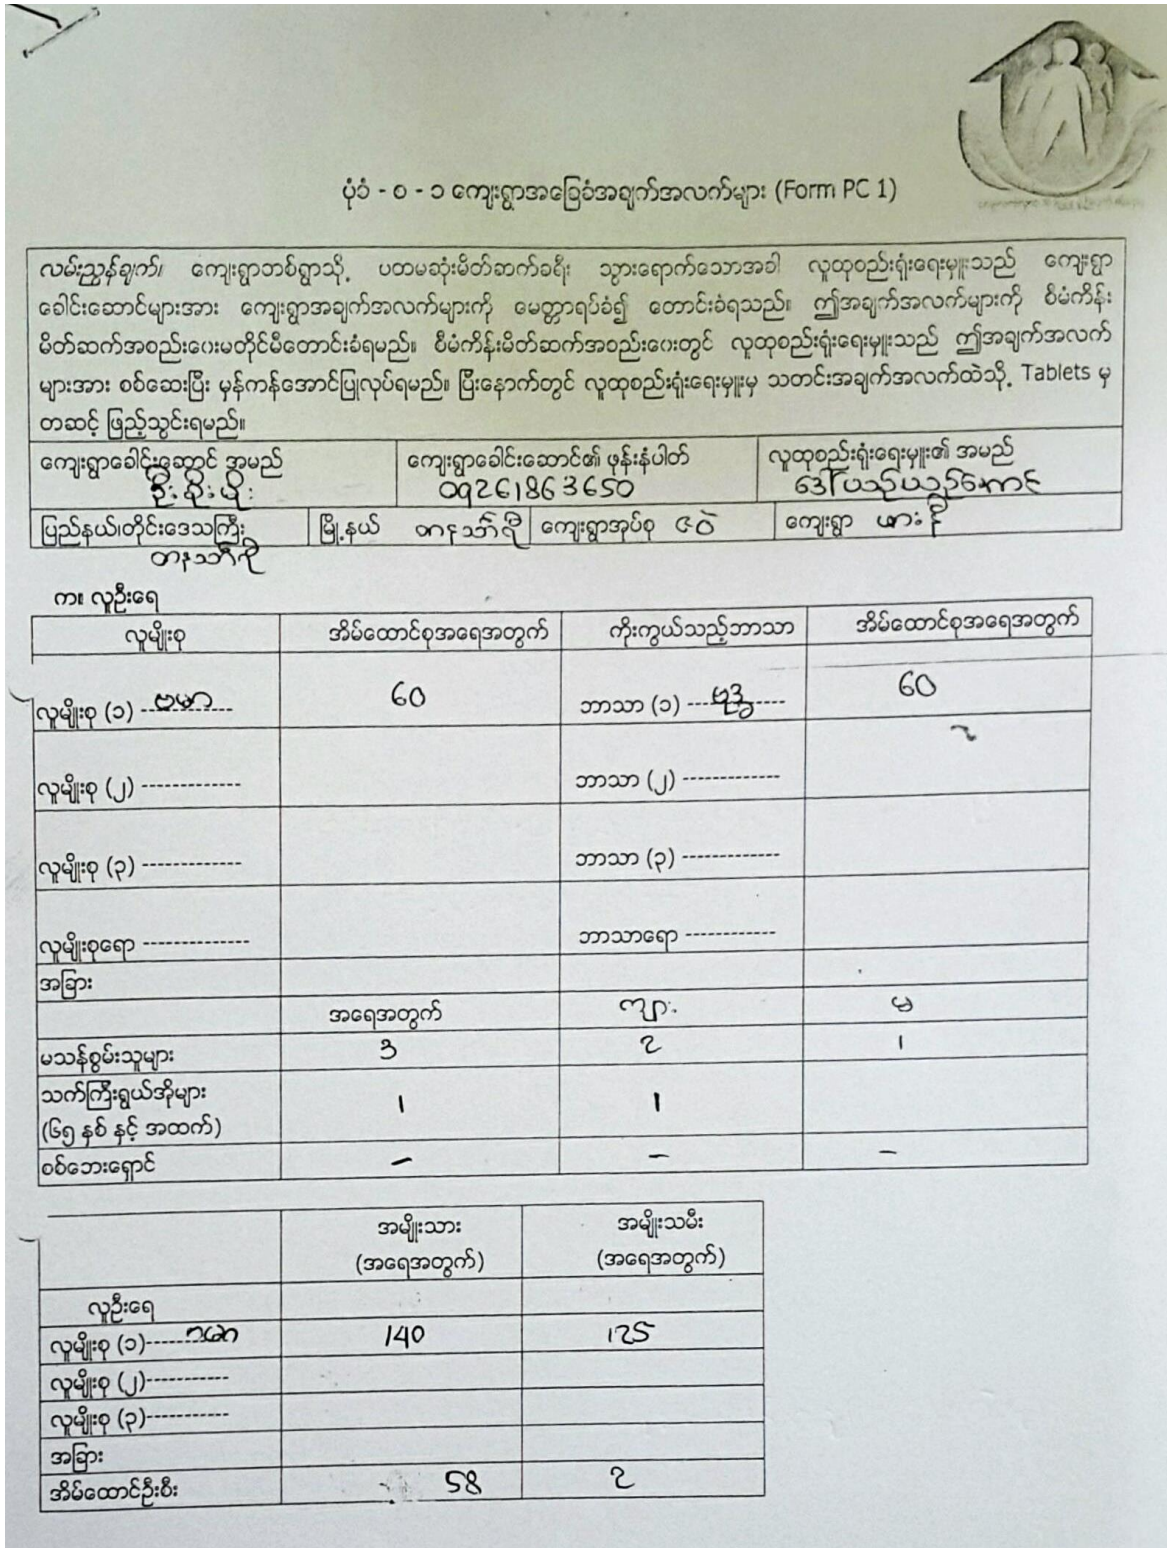 ပုံခံ - စ - ၁ ကျေးရွာအခြေခံအချက်အလက်များ (Form PC 1)
လမ်းညွှန်ချက်၊ ကျေးရွာတစ်ရွာသို့ ပထမဆုံးမိတ်ဆက်ခရီး သွားရောက်သောအခါ လူထုစည်းရုံးရေးမှူးသည် ကျေးရွာ
ခေါင်းဆောင်များအား ကျေးရွာအချက်အလက်များကို မေတ္တာရပ်ခံ၍ တောင်းခံရသည်။ ဤအချက်အလက်များကို စီမံကိန်း
မိတ်ဆက်အစည်းဝေးမတိုင်မီတောင်းခံရမည်။ စီမံကိန်းမိတ်ဆက်အစည်းဝေးတွင် လူထုစည်းရုံးရေးမှူးသည် ဤအချက်အလက်
များအား စစ်ဆေးပြီး မှန်ကန်အောင်ပြုလုပ်ရမည်။ ပြီးနောက်တွင် လူထုစည်းရုံးရေးမှူးမှ သတင်းအချက်အလက်ထဲသို့ Tablets မှ
တဆင့် ဖြည့်သွင်းရမည်။
ကျေးရွာခေါင်းဆောင် အမည် ကျေးရွာခေါင်းဆောင်၏ ဖုန်းနံပါတ် လူထုစည်းရုံးရေးမှူး၏ အမည်
ဦးစိုးမိုး 09261863650
ပြည်နယ်၊တိုင်းဒေသကြီး မြို့နယ် တနင်္သာရီ ကျေးရွာအုပ်စု ကျေးရွာ
တနင်္သာရီ
က။ လူဦးရေ
လူမျိုးစု အိမ်ထောင်စုအရေအတွက် ကိုးကွယ်သည့်ဘာသာ အိမ်ထောင်စုအရေအတွက်
လူမျိုးစု (၁) ဗမာ 60 ဘာသာ (၁) ဗုဒ္ဓ 60
လူမျိုးစု (၂) -------------- ဘာသာ (၂) --------------
လူမျိုးစု (၃) -------------- ဘာသာ (၃) --------------
လူမျိုးစုရော --------------- ဘာသာရော -------------
အခြား
အရေအတွက် ကျား မ
မသန်စွမ်းသူများ 3 2 1
သက်ကြီးရွယ်အိုများ 1 1
(၆၅ နှစ် နှင့် အထက်)
စစ်ဘေးရှောင် - - -
အမျိုးသား အမျိုးသမီး
(အရေအတွက်) (အရေအတွက်)
လူဦးရေ
လူမျိုးစု (၁) ဗမာ 140 125
လူမျိုးစု (၂)------------
လူမျိုးစု (၃)------------
အခြား
အိမ်ထောင်ဦးစီး 58 2